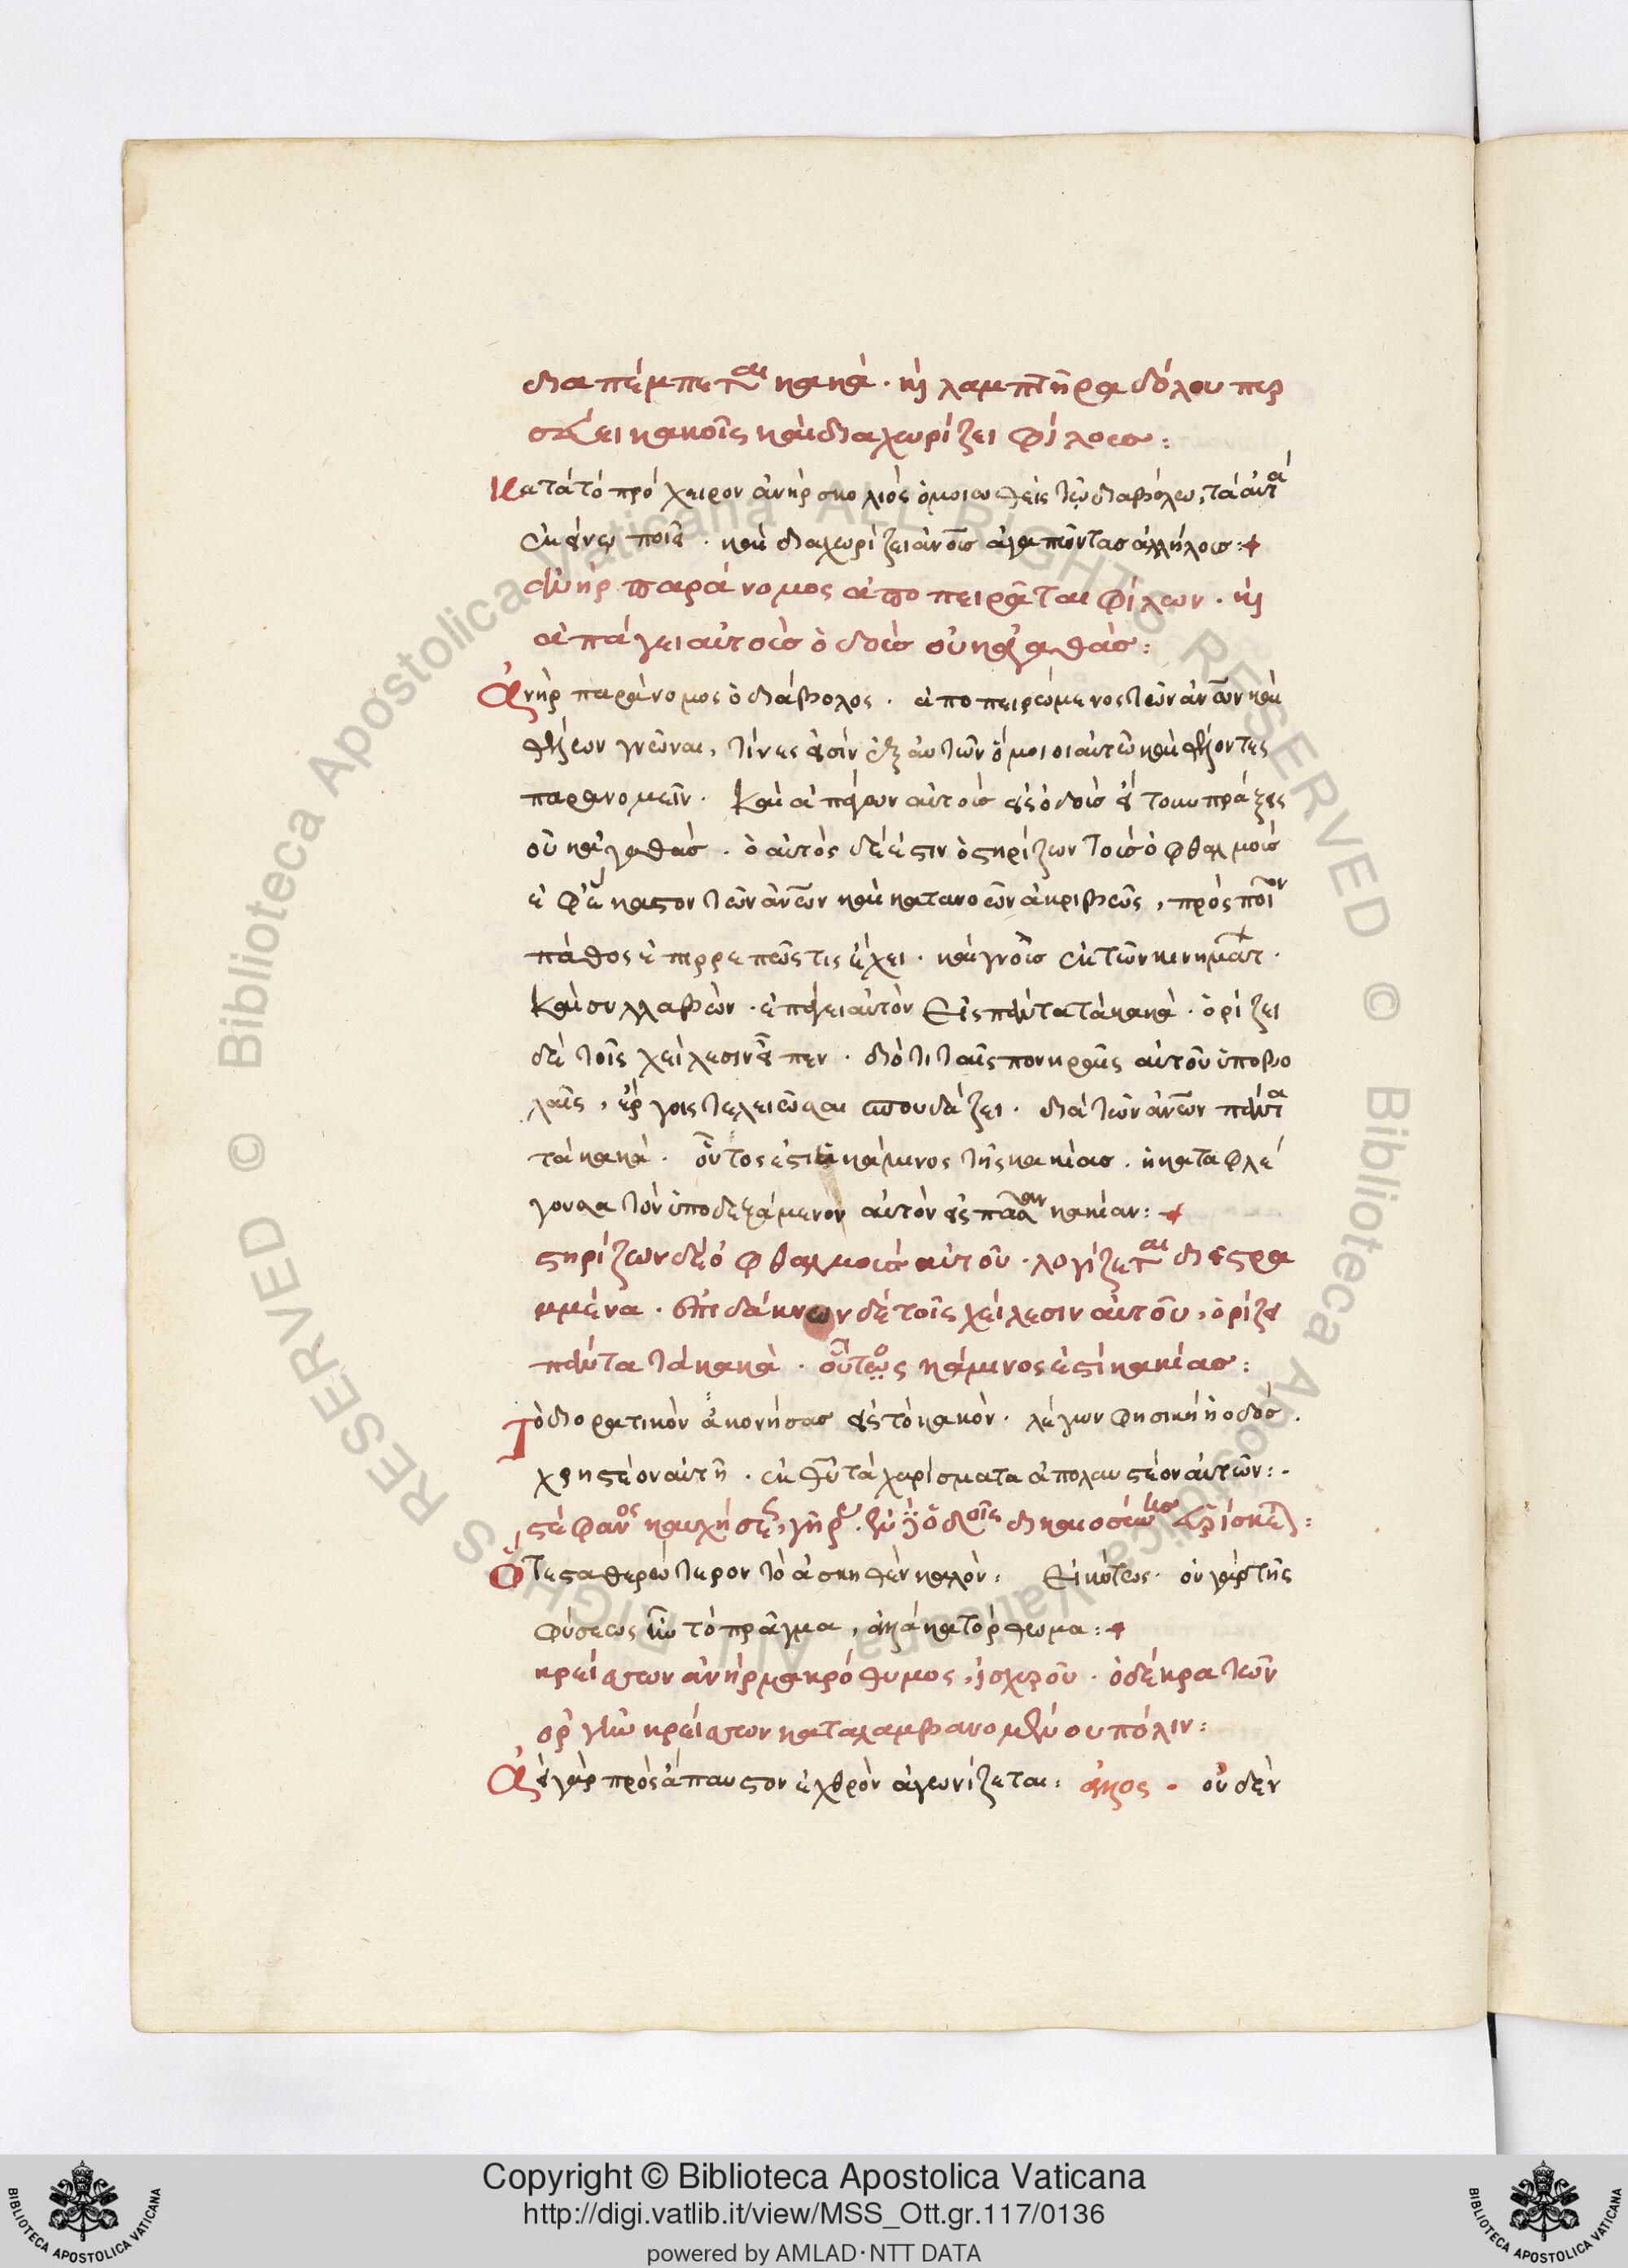 διαπέμπεται κακὰ · καὶ λαμπτῆρα δόλου πυρ
σεύει κακοῖς καὶ διαχωρίζει φίλους :
Κατὰ τὸ πρόχειρον ἀνὴρ σκολιὸς ὁμοιωθεὶς τῷ διαβόλῳ, τὰ αὐτὰ
ἐκείνῳ ποιεῖ · καὶ διαχωρίζει ἀνους ἀγαπῶντας ἀλλήλους :+
ἀνὴρ παράνομος ἀποπειρᾶται φίλων · καὶ
ἀπάγει αὐτοὺς ὁδοὺς οὐκ ἀγαθάς :
Ἀνὴρ παράνομος ὁ διάβολος · ἀποπειρώμενος τῶν ἀνων καὶ
θέλων γνῶναι, τίνες εἰσὶν ἐξ αὐτῶν ὅμοιοι αὐτῶ καὶ θέλοντες
παρανομεῖν · Καὶ ἀπάγων αὐτοὺς εἰς ὁδοὺς εἴτουν πράξεις
οὐκ ἀγαθάς · ὁ αὐτὸς δέ ἐστιν ὁ στηρίζων τοὺς ὀφθαλμοὺς
ἐφ' ἕκαστον τῶν ἀνων καὶ κατανοῶν ἀκριβῶς, πρὸς ποῖον
πάθος ἐπιρρεπῶς τις ἔχει · καὶ γνοὺς ἐκ τῶν κινημάτ ·
Καὶ συλλαβὼν · ἐπάγει αὐτὸν εἰς πάντα τὰ κακὰ · ὁρίζει
δὲ τοῖς χείλεσιν εἶπεν · διότι ταῖς πονηραῖς αὐτοῦ ὑποβο
λαῖς, ἔργοις τελειῶσαι σπουδάζει · διὰ τῶν ἀνων πάντα
τὰ κακὰ · οὗτός ἐστιν ἡ κάμινος τῆς κακίας · ἡ καταφλέ
γουσα τὸν ὑποδεξάμενον αὐτὸν εἰς πᾶσαν κακίαν : +
στηρίζων δὲ ὀφθαλμοὺς αὐτοῦ · λογίζεται διεστρα
μμένα · ἐπιδάκνων δὲ τοῖς χείλεσιν αὐτοῦ, ὁρίζει
πάντα τὰ κακὰ · οὗτος κάμινός ἐστὶ κακίας :
Τὸ διορατικὸν ἀκονήσας εἰς τὸ κακὸν · λέγων φησικὴ ἡ ὁδός ·
χρηστέον αὐτῇ · ἐκ θυ τὰ χαρίσματα ἀπολαυστέον αὐτῶν : ·
στέφανος καυχήσεως, γῆρας · ἐν δὲ ὁδοῖς δικαιοσύνης εὑρίσκεται :
Ὅτε σαθερώτερον τὸ ἀσκηθὲν καλὸν : Εἰκότως · οὐ γὰρ τῆς
φύσεως ἦν τὸ πρᾶγμα, ἀλλὰ κατόρθωμα : +
κρείσσων ἀνὴρ μακρόθυμος, ἰσχυροῦ · ὁ δὲ κρατῶν
ὀργὴν κρείσσων καταλαμβανομένου πόλιν :
Ἀεὶ γὰρ πρὸς ἄπαυστον ἐχθρὸν ἀγωνίζεται : ἄλλος · οὐδὲν
Copyright © Biblioteca Apostolica Vaticana
http://digi.vatlib.it/view/MSS_Ott.gr.117/0136
powered by AMLAD·NTT DATA